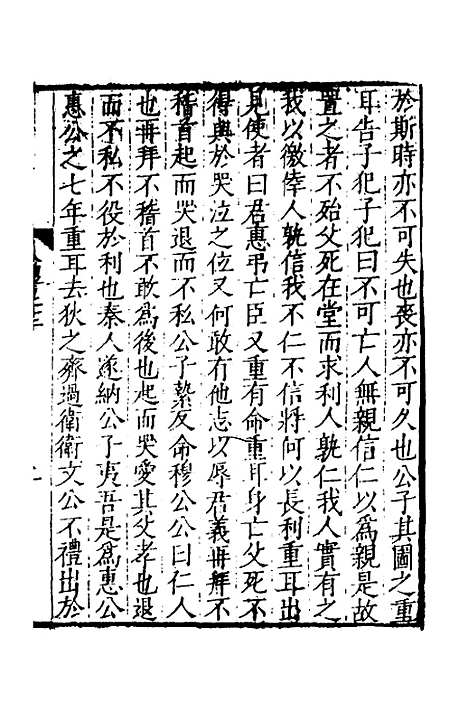 於斯時亦不可失也喪亦不可久也公子其圖之重
耳告子犯子犯曰不可亡人無親信仁以爲親是故
置之者不殆父死在堂而求利人孰仁我人實有之
我以徼倖人孰信我不仁不信將何以長利重耳出
見使者曰君惠弔亡臣又重有命重耳身亡父死不
得與於哭泣之位又何敢有他志以辱君義再拜不
稽首起而哭退而不私公子縶反命穆公公曰仁人
也再拜不稽首不敢爲後也起而哭愛其父孝也退
而不私不役於利也秦人遂納公子夷吾是爲惠公
惠公之七年重耳去狄之齊過衛衛文公不禮出於